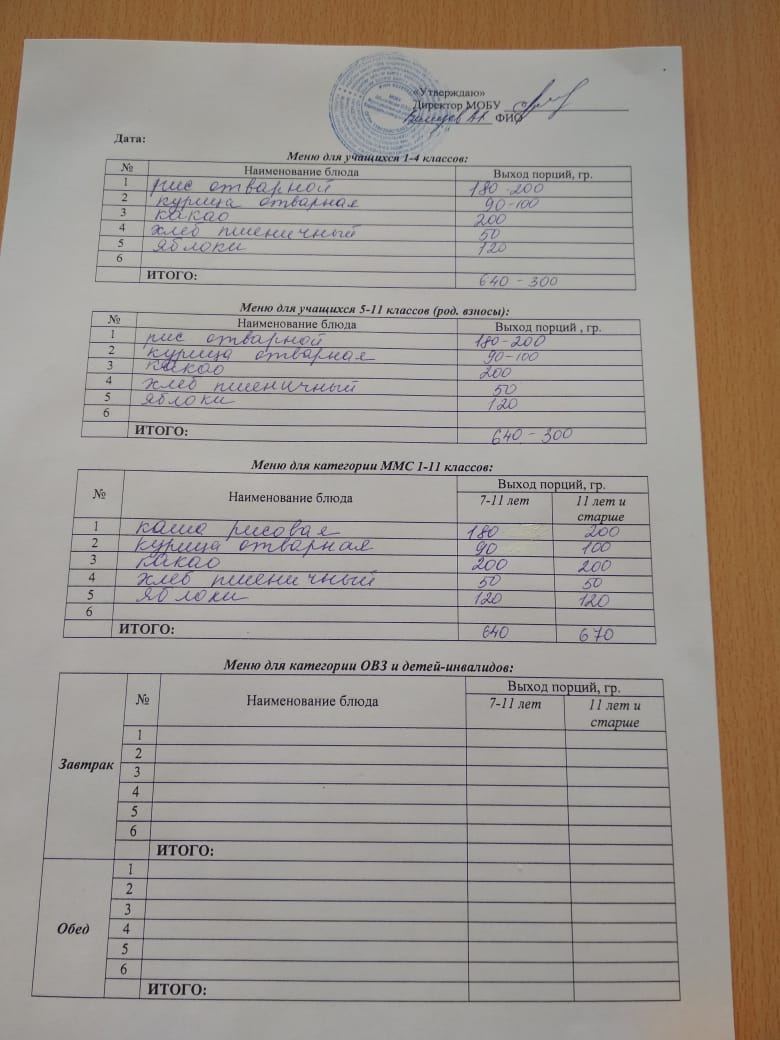 «Утверждаю»
Директор МОБУ
ФИО
Дата:
Меню для учащихся 1-4 классов:
№ Наименование блюда Выход порций, гр.
1 рис отварной 180-200
2 курица отварная 90-100
3 какао 200
4 хлеб пшеничный 50
5 яблоки 120
6
ИТОГО: 640-300
Меню для учащихся 5-11 классов (род. взносы):
№ Наименование блюда Выход порций , гр.
1 рис отварной 180-200
2 курица отварная 90-100
3 какао 200
4 хлеб пшеничный 50
5 яблоки 120
6
ИТОГО: 640-300
Меню для категории ММС 1-11 классов:
№ Наименование блюда Выход порций, гр.
7-11 лет 11 лет и
старше
1 каша рисовая 180 200
2 курица отварная 90 100
3 какао 200 200
4 хлеб пшеничный 50 50
5 яблоки 120 120
6
ИТОГО: 640 670
Меню для категории ОВЗ и детей-инвалидов:
№ Наименование блюда Выход порций, гр.
7-11 лет 11 лет и
старше
Завтрак
1
2
3
4
5
6
ИТОГО:
Обед
1
2
3
4
5
6
ИТОГО: